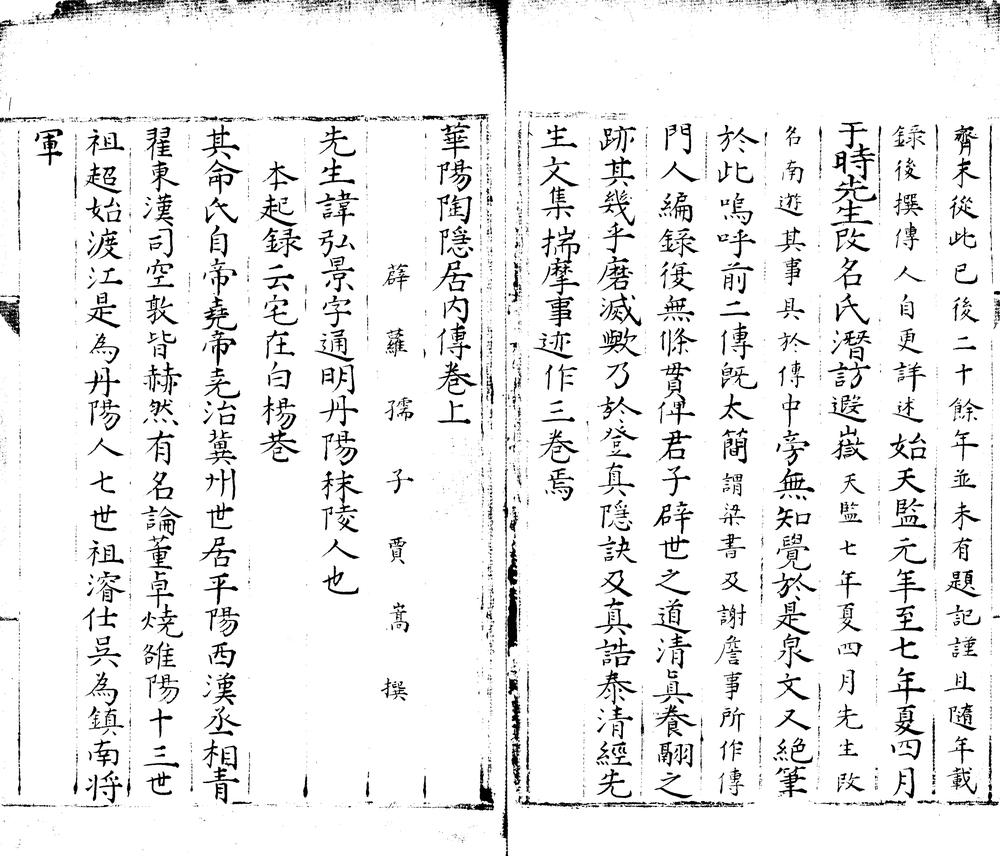 齊末從此已後二十餘年並未有題記謹且隨年載
錄後撰傳人自更詳述始天監元年至七年夏四月
于時先生改名氏潛訪遐嶽天監七年夏四月先生改
名南遊其事具於傳中旁無知覺於是泉文又絕筆
於此嗚呼前二傳既太簡謂梁書及謝詹事所作傳
門人編錄復無條貫俾君子辟世之道清眞養翮之
跡其幾乎磨滅歟乃於登真隱訣及真誥泰清經先
生文集揣摩事迹作三卷焉
華陽陶隱居内傳卷上
薜蘿孺子賈嵩撰
先生諱弘景字通明丹陽秣陵人也
本起録云宅在白楊巷
其命氏自帝堯帝堯治冀州世居平陽西漢丞相青
翟東漢司空敦皆赫然有名論董卓燒雒陽十三世
祖超始渡江是為丹陽人七世祖濬仕吳為鎮南将
軍